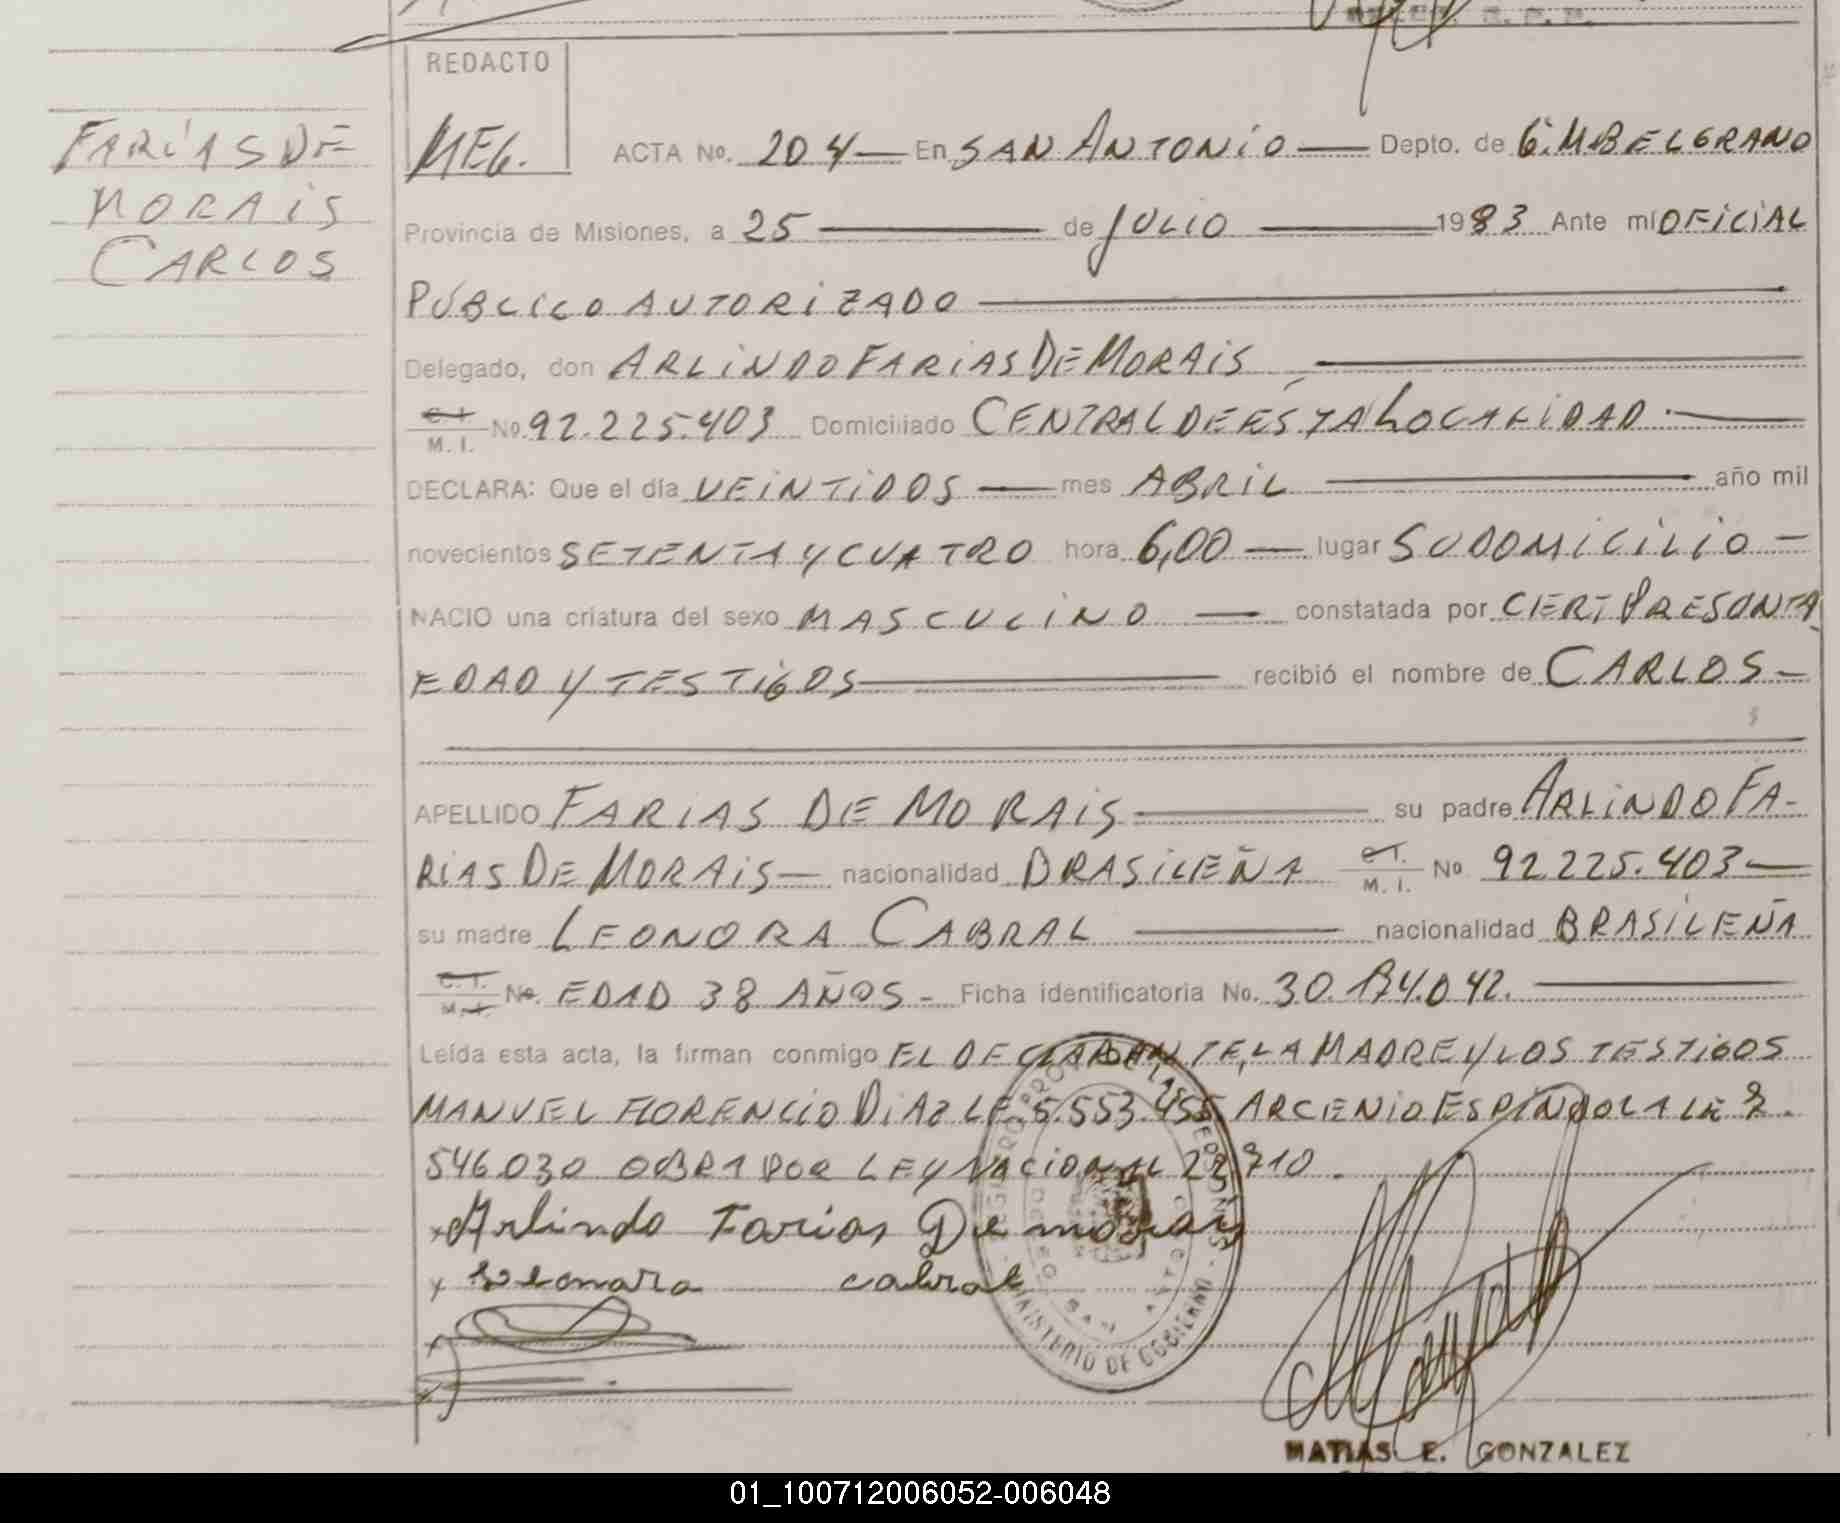 REDACTO
FARÍAS DE
MORAIS
CARLOS
MEG. ACTA No. 204 — En SAN ANTONIO — Depto. de G.M. BELGRANO
Provincia de Misiones, a 25 — de JULIO — 1983 Ante mí OFICIAL
PÚBLICO AUTORIZADO —
Delegado, don ARLINDO FARIAS DE MORAIS —
C. I. / M. I. No. 92.225.403 Domiciliado CENTRAL DE ÉSTA LOCALIDAD. —
DECLARA: Que el día VEINTIDOS — mes ABRIL — año mil
novecientos SETENTA Y CUATRO hora 6,00 — lugar SU DOMICILIO —
NACIO una criatura del sexo MASCULINO — constatada por CERT. PRESONTA
EDAD Y TESTIGOS — recibió el nombre de CARLOS —
APELLIDO FARIAS DE MORAIS — su padre ARLINDO FA-
RIAS DE MORAIS — nacionalidad BRASILEÑA C. I. / M. I. No. 92.225.403 —
su madre LEONORA CABRAL — nacionalidad BRASILEÑA
C. I. / M. I. No. EDAD 38 AÑOS - Ficha identificatoria No. 30.174.042. —
Leída esta acta, la firman conmigo EL DECLARANTE, LA MADRE Y LOS TESTIGOS
MANUEL FLORENCIO DIAZ LE 5.553.455 ARCENIO ESPÍNDOLA LE 7.
546.030 OBRA POR LEY NACIONAL 22.710.
Arlindo Farias De morays
Leonora cabral
MINISTERIO DE GOBIERNO
MATIAS E. GONZALEZ
01_100712006052-006048